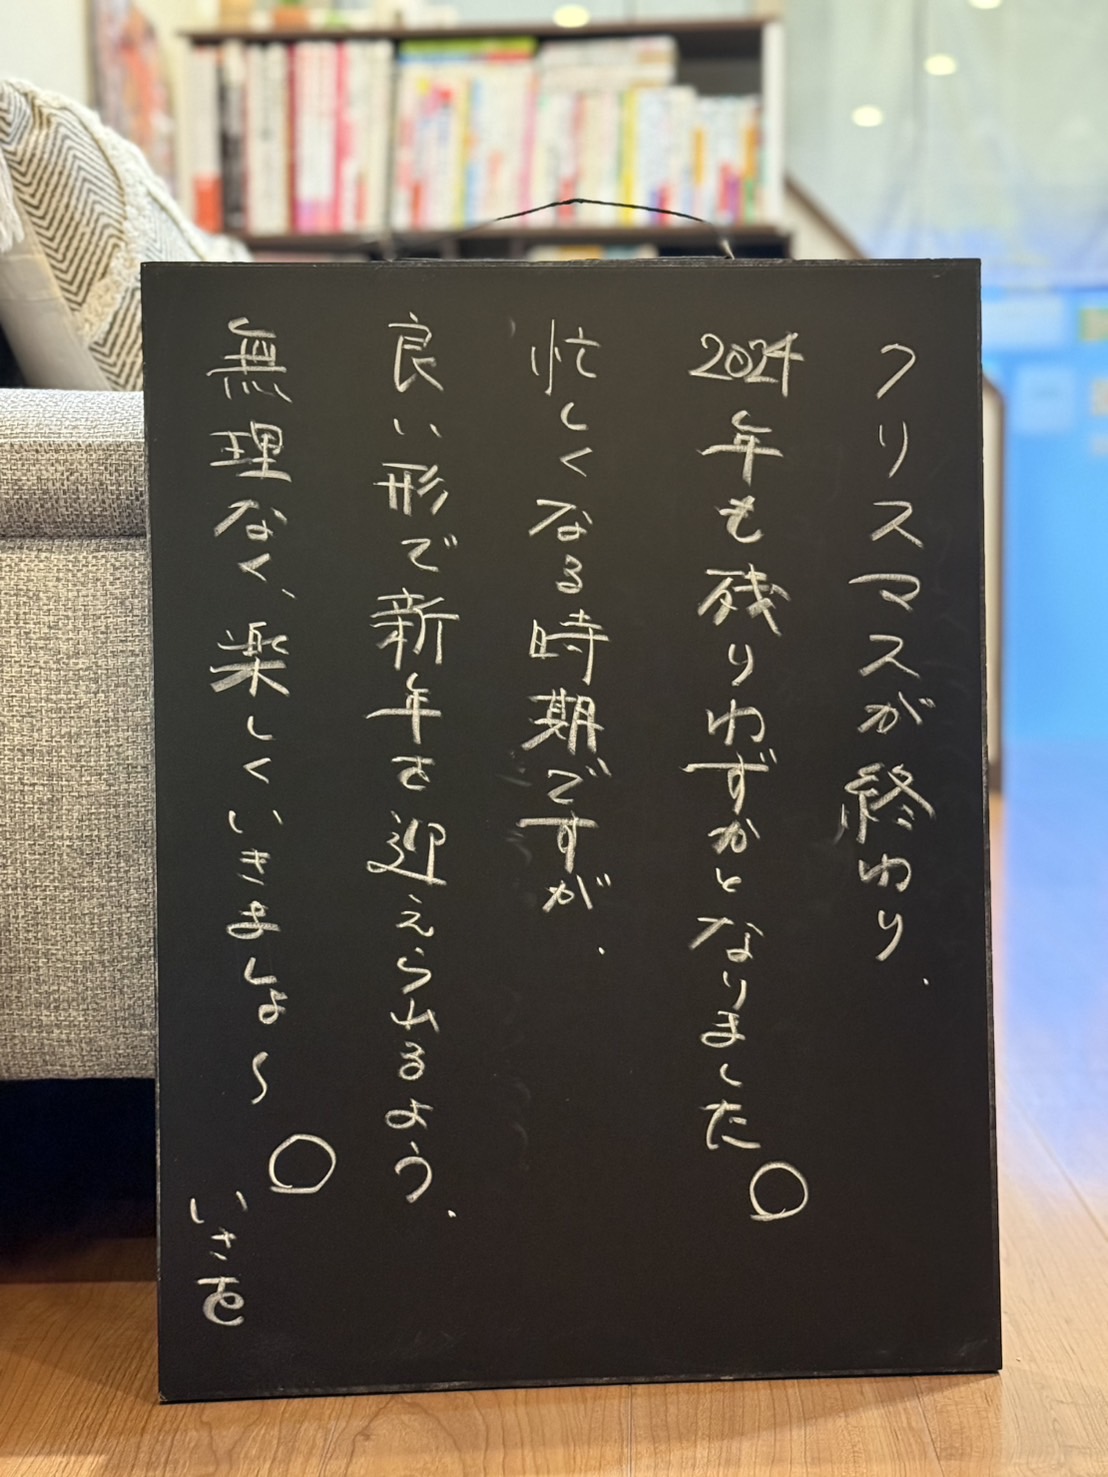 クリスマスが終わり、
2024年も残りわずかとなりました。
忙しくなる時期ですが、
良い形で新年を迎えられるよう、
無理なく、楽しくいきましょ〜。
いさを